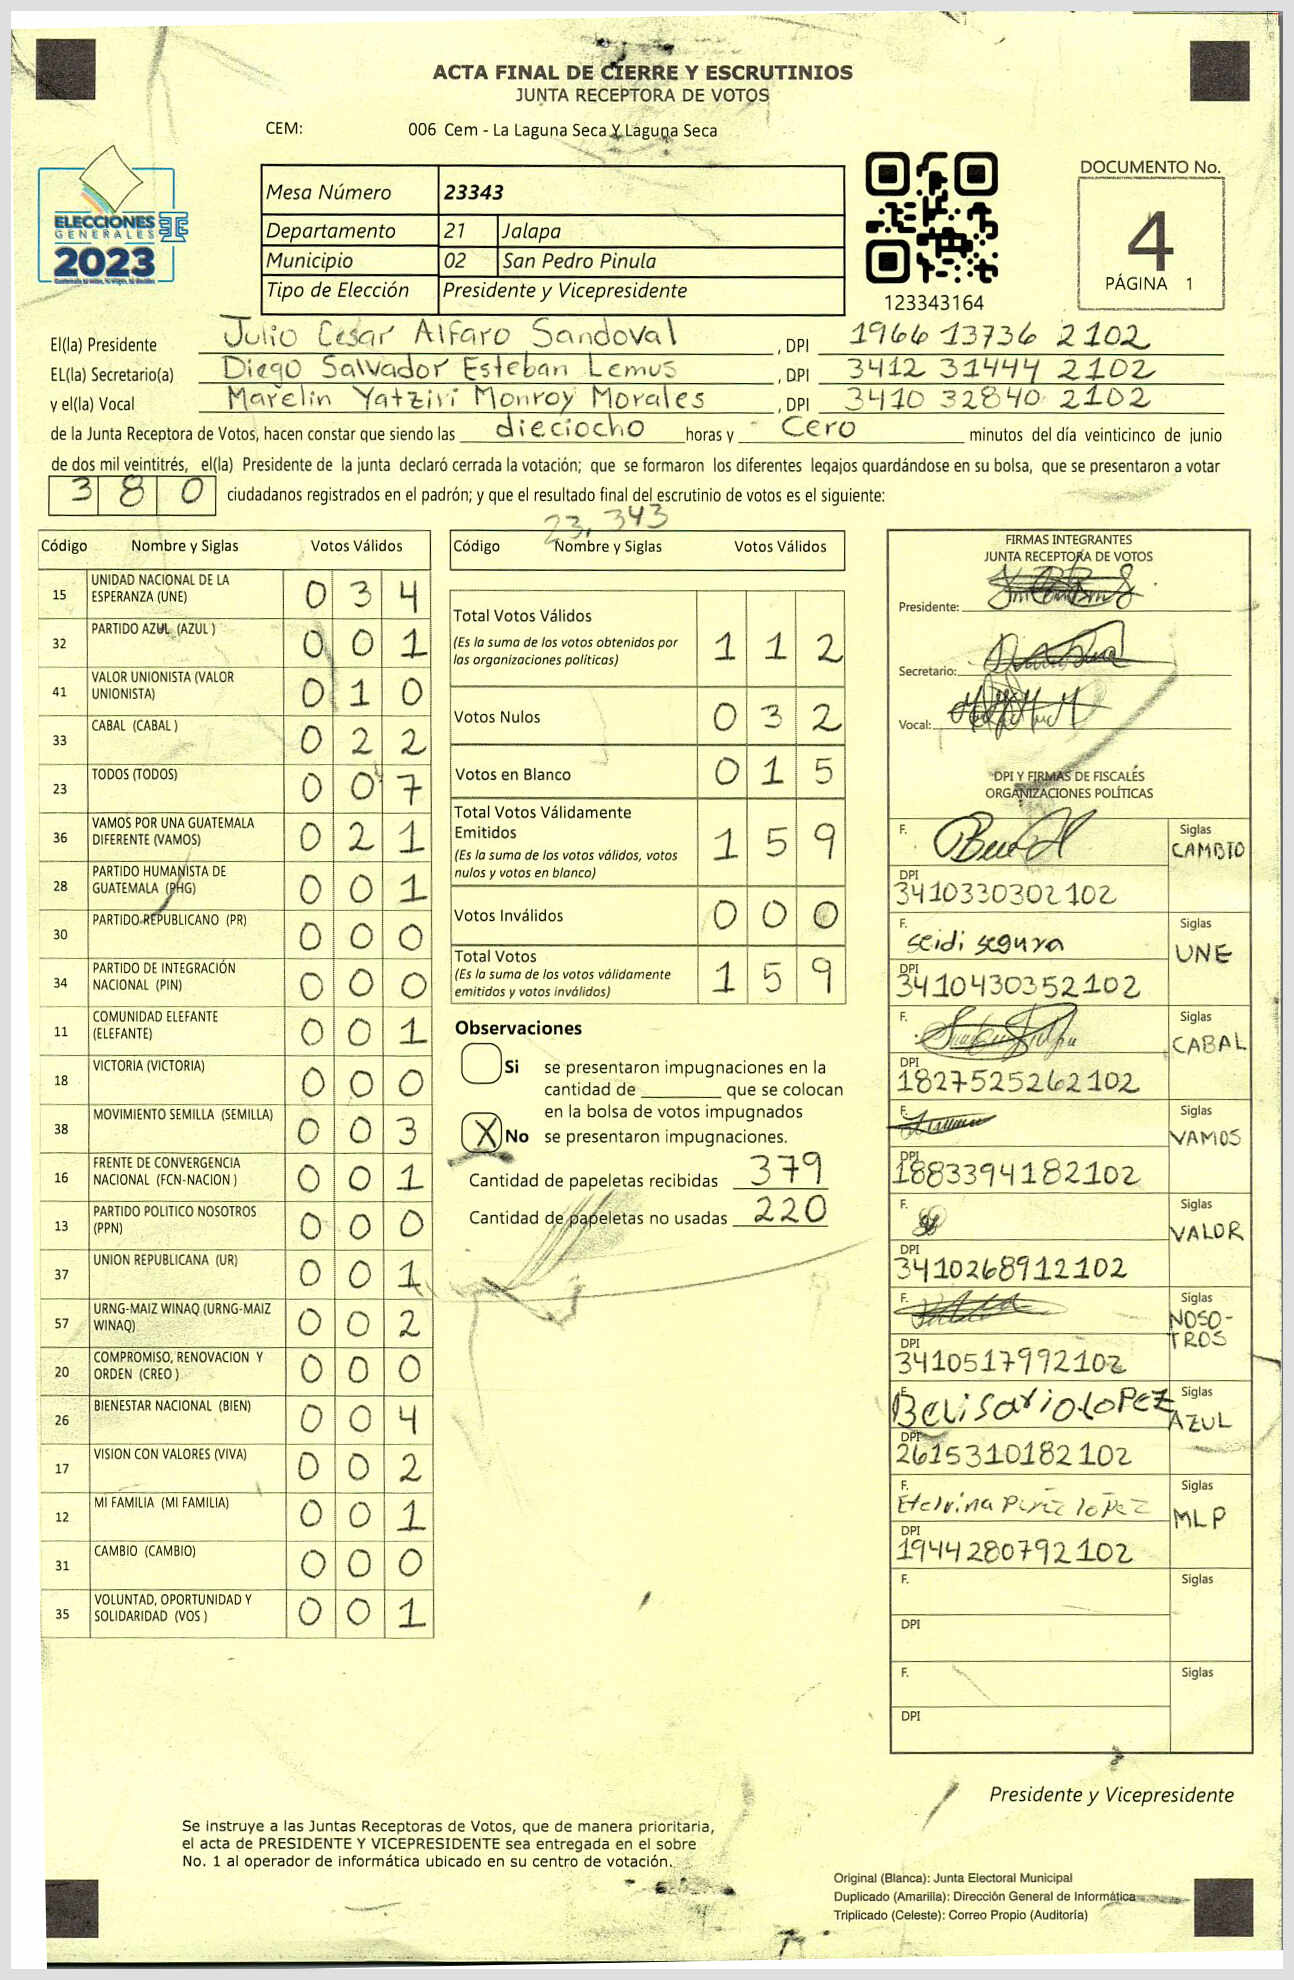 ACTA FINAL DE CIERRE Y ESCRUTINIOS
JUNTA RECEPTORA DE VOTOS
CEM: 006 Cem - La Laguna Seca Y Laguna Seca
ELECCIONES
GENERALES
2023
Mesa Número 23343
Departamento 21 Jalapa
Municipio 02 San Pedro Pinula
Tipo de Elección Presidente y Vicepresidente
123343164
DOCUMENTO No.
4
PÁGINA 1
El(la) Presidente Julio Cesar Alfaro Sandoval , DPI 1966 13736 2102
EL(la) Secretario(a) Diego Salvador Esteban Lemus , DPI 3412 31444 2102
y el(la) Vocal Marelin Yatziri Monroy Morales , DPI 3410 32840 2102
de la Junta Receptora de Votos, hacen constar que siendo las dieciocho horas y Cero minutos del día veinticinco de junio
de dos mil veintitrés, el(la) Presidente de la junta declaró cerrada la votación; que se formaron los diferentes legajos guardándose en su bolsa, que se presentaron a votar
380 ciudadanos registrados en el padrón; y que el resultado final del escrutinio de votos es el siguiente:
23,343
Código Nombre y Siglas Votos Válidos
15 UNIDAD NACIONAL DE LA ESPERANZA (UNE) 0 3 4
32 PARTIDO AZUL (AZUL ) 0 0 1
41 VALOR UNIONISTA (VALOR UNIONISTA) 0 1 0
33 CABAL (CABAL ) 0 2 2
23 TODOS (TODOS) 0 0 7
36 VAMOS POR UNA GUATEMALA DIFERENTE (VAMOS) 0 2 1
28 PARTIDO HUMANISTA DE GUATEMALA (PHG) 0 0 1
30 PARTIDO REPUBLICANO (PR) 0 0 0
34 PARTIDO DE INTEGRACIÓN NACIONAL (PIN) 0 0 0
11 COMUNIDAD ELEFANTE (ELEFANTE) 0 0 1
18 VICTORIA (VICTORIA) 0 0 0
38 MOVIMIENTO SEMILLA (SEMILLA) 0 0 3
16 FRENTE DE CONVERGENCIA NACIONAL (FCN-NACION ) 0 0 1
13 PARTIDO POLITICO NOSOTROS (PPN) 0 0 0
37 UNION REPUBLICANA (UR) 0 0 1
57 URNG-MAIZ WINAQ (URNG-MAIZ WINAQ) 0 0 2
20 COMPROMISO, RENOVACION Y ORDEN (CREO ) 0 0 0
26 BIENESTAR NACIONAL (BIEN) 0 0 4
17 VISION CON VALORES (VIVA) 0 0 2
12 MI FAMILIA (MI FAMILIA) 0 0 1
31 CAMBIO (CAMBIO) 0 0 0
35 VOLUNTAD, OPORTUNIDAD Y SOLIDARIDAD (VOS ) 0 0 1
Código Nombre y Siglas Votos Válidos
Total Votos Válidos 1 1 2
(Es la suma de los votos obtenidos por
las organizaciones políticas)
Votos Nulos 0 3 2
Votos en Blanco 0 1 5
Total Votos Válidamente
Emitidos 1 5 9
(Es la suma de los votos válidos, votos
nulos y votos en blanco)
Votos Inválidos 0 0 0
Total Votos 1 5 9
(Es la suma de los votos válidamente
emitidos y votos inválidos)
Observaciones
Si se presentaron impugnaciones en la
cantidad de ________ que se colocan
en la bolsa de votos impugnados
X No se presentaron impugnaciones.
Cantidad de papeletas recibidas 379
Cantidad de papeletas no usadas 220
FIRMAS INTEGRANTES
JUNTA RECEPTORA DE VOTOS
Presidente:
Secretario:
Vocal:
DPI Y FIRMAS DE FISCALES
ORGANIZACIONES POLÍTICAS
F. Siglas
CAMBIO
DPI
3410330302102
F. Siglas
seidi segura UNE
DPI
3410430352102
F. Siglas
CABAL
DPI
1827525262102
F. Siglas
VAMOS
DPI
1883394182102
F. Siglas
VALOR
DPI
3410268912102
F. Siglas
NOSO-
TROS
DPI
3410517992102
F. Siglas
Belisario lopez AZUL
DPI
2615310182102
F. Siglas
lopez MLP
DPI
1944280792102
F. Siglas
DPI
F. Siglas
DPI
Presidente y Vicepresidente
Se instruye a las Juntas Receptoras de Votos, que de manera prioritaria,
el acta de PRESIDENTE Y VICEPRESIDENTE sea entregada en el sobre
No. 1 al operador de informática ubicado en su centro de votación.
Original (Blanca): Junta Electoral Municipal
Duplicado (Amarilla): Dirección General de Informática
Triplicado (Celeste): Correo Propio (Auditoría)